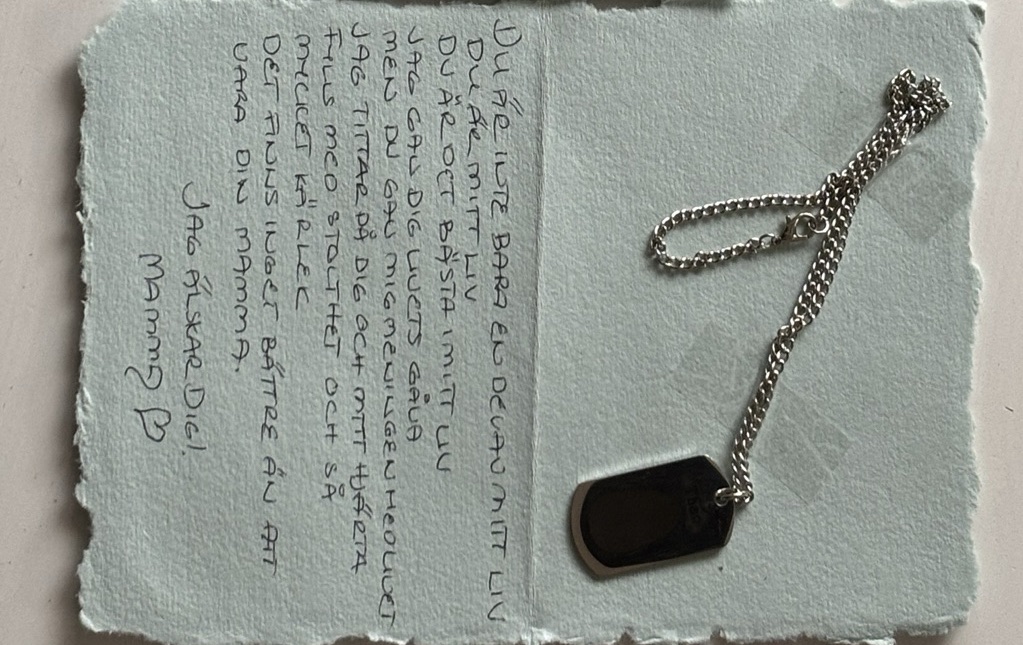 DU ÄR INTE BARA EN DEL AV MITT LIV
DU ÄR MITT LIV
DU ÄR DET BÄSTA I MITT LIV
JAG GAV DIG LIVETS GÅVA
MEN DU GAV MIG MENINGEN MED LIVET
JAG TITTAR PÅ DIG OCH MITT HJÄRTA
FYLLS MED STOLTHET OCH SÅ
MYCKET KÄRLEK
DET FINNS INGET BÄTTRE ÄN ATT
VARA DIN MAMMA.
JAG ÄLSKAR DIG!
MAMMA